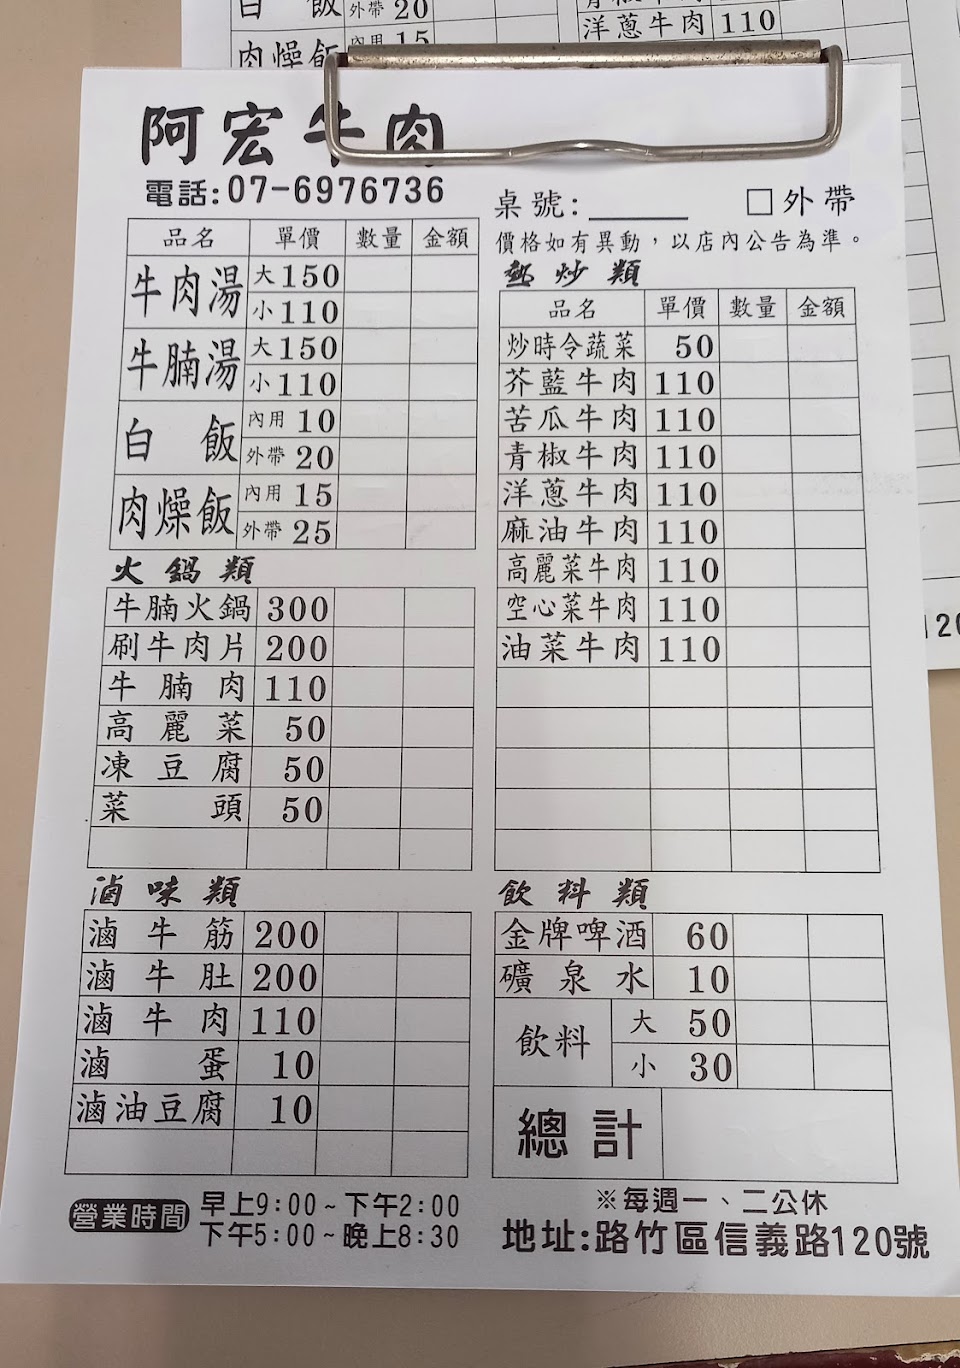 白 飯 外帶 20
肉燥飯 內用 15
洋蔥牛肉 110
阿宏牛肉
電話:07-6976736
桌號:
□外帶
價格如有異動，以店內公告為準。
品名 單價 數量 金額
牛肉湯 大 150
小 110
牛腩湯 大 150
小 110
白 飯 內用 10
外帶 20
肉燥飯 內用 15
外帶 25
火鍋類
牛腩火鍋 300
刷牛肉片 200
牛腩肉 110
高麗菜 50
凍豆腐 50
菜頭 50
滷味類
滷牛筋 200
滷牛肚 200
滷牛肉 110
滷蛋 10
滷油豆腐 10
熱炒類
品名 單價 數量 金額
炒時令蔬菜 50
芥藍牛肉 110
苦瓜牛肉 110
青椒牛肉 110
洋蔥牛肉 110
麻油牛肉 110
高麗菜牛肉 110
空心菜牛肉 110
油菜牛肉 110
飲料類
金牌啤酒 60
礦泉水 10
飲料 大 50
小 30
總計
營業時間 早上9:00~下午2:00
下午5:00~晚上8:30
※每週一、二公休
地址:路竹區信義路120號